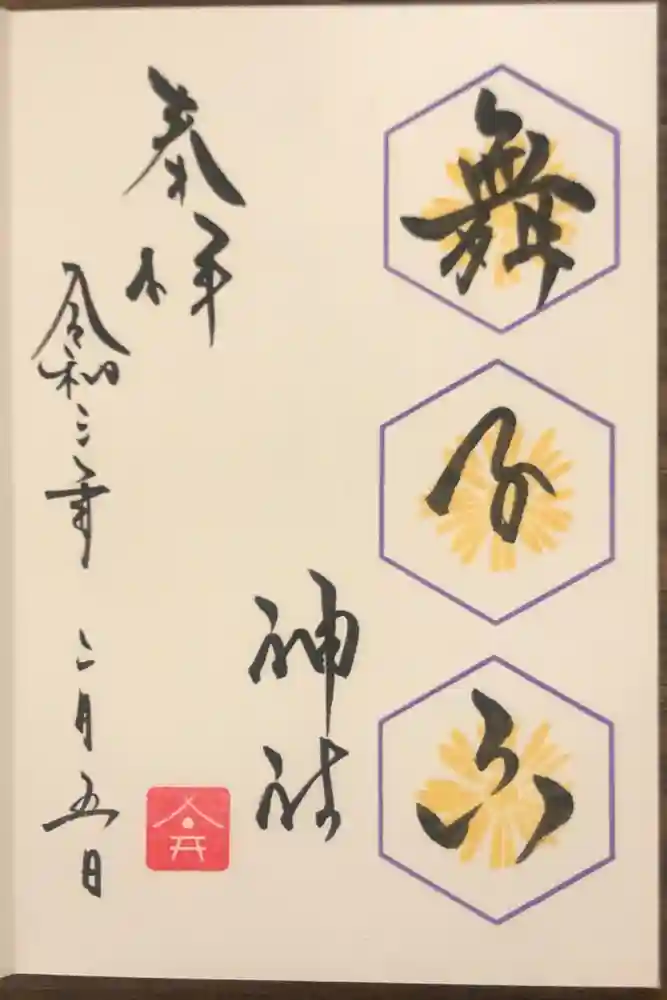 舞子六
神社
奉拝
令和三年 二月五日